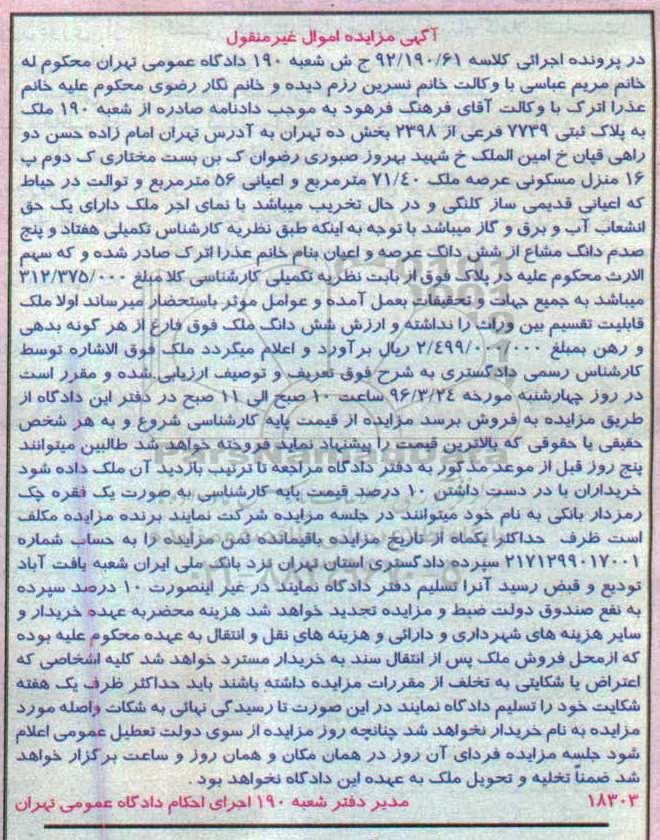 آگهی مزایده اموال غیرمنقول
در پرونده اجرائی کلاسه ۹۲/۱۹۰/۶۱ ج ش شعبه ۱۹۰ دادگاه عمومی تهران محکوم له
خانم مریم عباسی با وکالت خانم نسرین رزم دیده و خانم نگار رضوی محکوم علیه خانم
عذرا اترک با وکالت آقای فرهنگ فرهود به موجب دادنامه صادره از شعبه ۱۹۰ ملک
به پلاک ثبتی ۷۷۳۹ فرعی از ۲۳۹۸ بخش ده تهران به آدرس تهران امام زاده حسن دو
راهی قپان خ امین الملک خ شهید بهروز صبوری رضوان ک بن بست مختاری ک دوم پ
۱۶ منزل مسکونی عرصه ملک ۷۱/٤۰ مترمربع و اعیانی ۵۶ مترمربع و توالت در حیاط
که اعیانی قدیمی ساز کلنگی و در حال تخریب میباشد با نمای اجر ملک دارای یک حق
انشعاب آب و برق و گاز میباشد با توجه به اینکه طبق نظریه کارشناس تکمیلی هفتاد و پنج
صدم دانگ مشاع از شش دانگ عرصه و اعیان بنام خانم عذرا اترک صادر شده و که سهم
الارث محکوم علیه در پلاک فوق از بابت نظریه تکمیلی کارشناسی کلا مبلغ ۳۱۲/۳۷۵/۰۰۰
میباشد به جمیع جهات و تحقیقات بعمل آمده و عوامل موثر باستحضار میرساند اولا ملک
قابلیت تقسیم بین وراث را نداشته و ارزش شش دانگ ملک فوق فارغ از هر گونه بدهی
و رهن بمبلغ ۲/٤۹۹/۰۰۰/۰۰۰ ریال برآورد و اعلام میگردد ملک فوق الاشاره توسط
کارشناس رسمی دادگستری به شرح فوق تعریف و توصیف ارزیابی شده و مقرر است
در روز چهارشنبه مورخه ۹۶/۳/۲٤ ساعت ۱۰ صبح الی ۱۱ صبح در دفتر این دادگاه از
طریق مزایده به فروش برسد مزایده از قیمت پایه کارشناسی شروع و به هر شخص
حقیقی یا حقوقی که بالاترین قیمت را پیشنهاد نماید فروخته خواهد شد طالبین میتوانند
پنج روز قبل از موعد مذکور به دفتر دادگاه مراجعه تا ترتیب بازدید آن ملک داده شود
خریداران با در دست داشتن ۱۰ درصد قیمت پایه کارشناسی به صورت یک فقره چک
رمزدار بانکی به نام خود میتوانند در جلسه مزایده شرکت نمایند برنده مزایده مکلف
است ظرف حداکثر یکماه از تاریخ مزایده باقیمانده ثمن مزایده را به حساب شماره
۲۱۷۱۲۹۹۰۱۷۰۰۱ سپرده دادگستری استان تهران نزد بانک ملی ایران شعبه یافت آباد
تودیع و قبض رسید آنرا تسلیم دفتر دادگاه نمایند در غیر اینصورت ۱۰ درصد سپرده
به نفع صندوق دولت ضبط و مزایده تجدید خواهد شد هزینه محضربه عهده خریدار و
سایر هزینه های شهرداری و دارائی و هزینه های نقل و انتقال به عهده محکوم علیه بوده
که ازمحل فروش ملک پس از انتقال سند به خریدار مسترد خواهد شد کلیه اشخاصی که
اعتراض یا شکایتی به تخلف از مقررات مزایده داشته باشند باید حداکثر ظرف یک هفته
شکایت خود را تسلیم دادگاه نمایند در این صورت تا رسیدگی نهائی به شکات واصله مورد
مزایده به نام خریدار نخواهد شد چنانچه روز مزایده از سوی دولت تعطیل عمومی اعلام
شود جلسه مزایده فردای آن روز در همان مکان و همان روز و ساعت برگزار خواهد
شد ضمناً تخلیه و تحویل ملک به عهده این دادگاه نخواهد بود.
۱۸۳۰۳ مدیر دفتر شعبه ۱۹۰ اجرای احکام دادگاه عمومی تهران
ParsNamadData